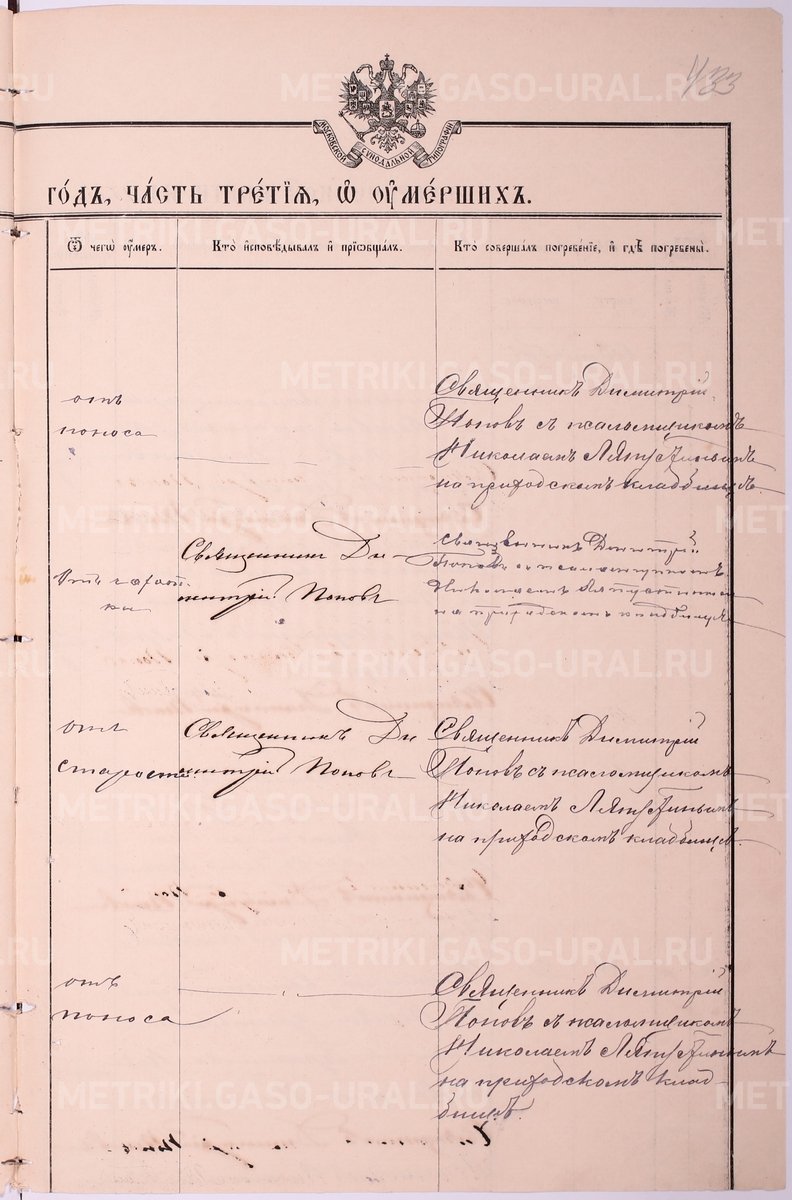 433
МОСКОВСКОЙ СУНОДАЛЬНОЙ ТИПОГРАФІИ
го́дъ, ча́сть тре́тїѧ, ѡ҆ ᲂу҆ме́ршихъ.
Ѿ чегѡ̀ ᲂу҆́меръ.
Кто̀ и҆сповѣ́дывалъ и҆ прїѻбща́лъ.
Кто̀ соверша́лъ погребе́нїе, и҆ гдѣ̀ погребены̀.
отъ
поноса
Священникъ Димитрій
Поповъ съ псаломщикомъ
Николаемъ Ляпустинымъ
на приходскомъ кладбищѣ.
Отъ горяч-
ки
Священникъ Ди-
митрій Поповъ
Священникъ Димитрій
Поповъ съ псаломщикомъ
Николаемъ Ляпустинымъ
на приходскомъ кладбищѣ
отъ
старости
Священникъ Ди
митрій Поповъ
Священникъ Димитрій
Поповъ съ псаломщикомъ
Николаемъ Ляпустинымъ
на приходскомъ кладбищѣ.
отъ
поноса
Священникъ Димитрій
Поповъ съ псаломщикомъ
Николаемъ Ляпустинымъ
на приходскомъ клад-
бищѣ.
METRIKI.GASO-URAL.RU